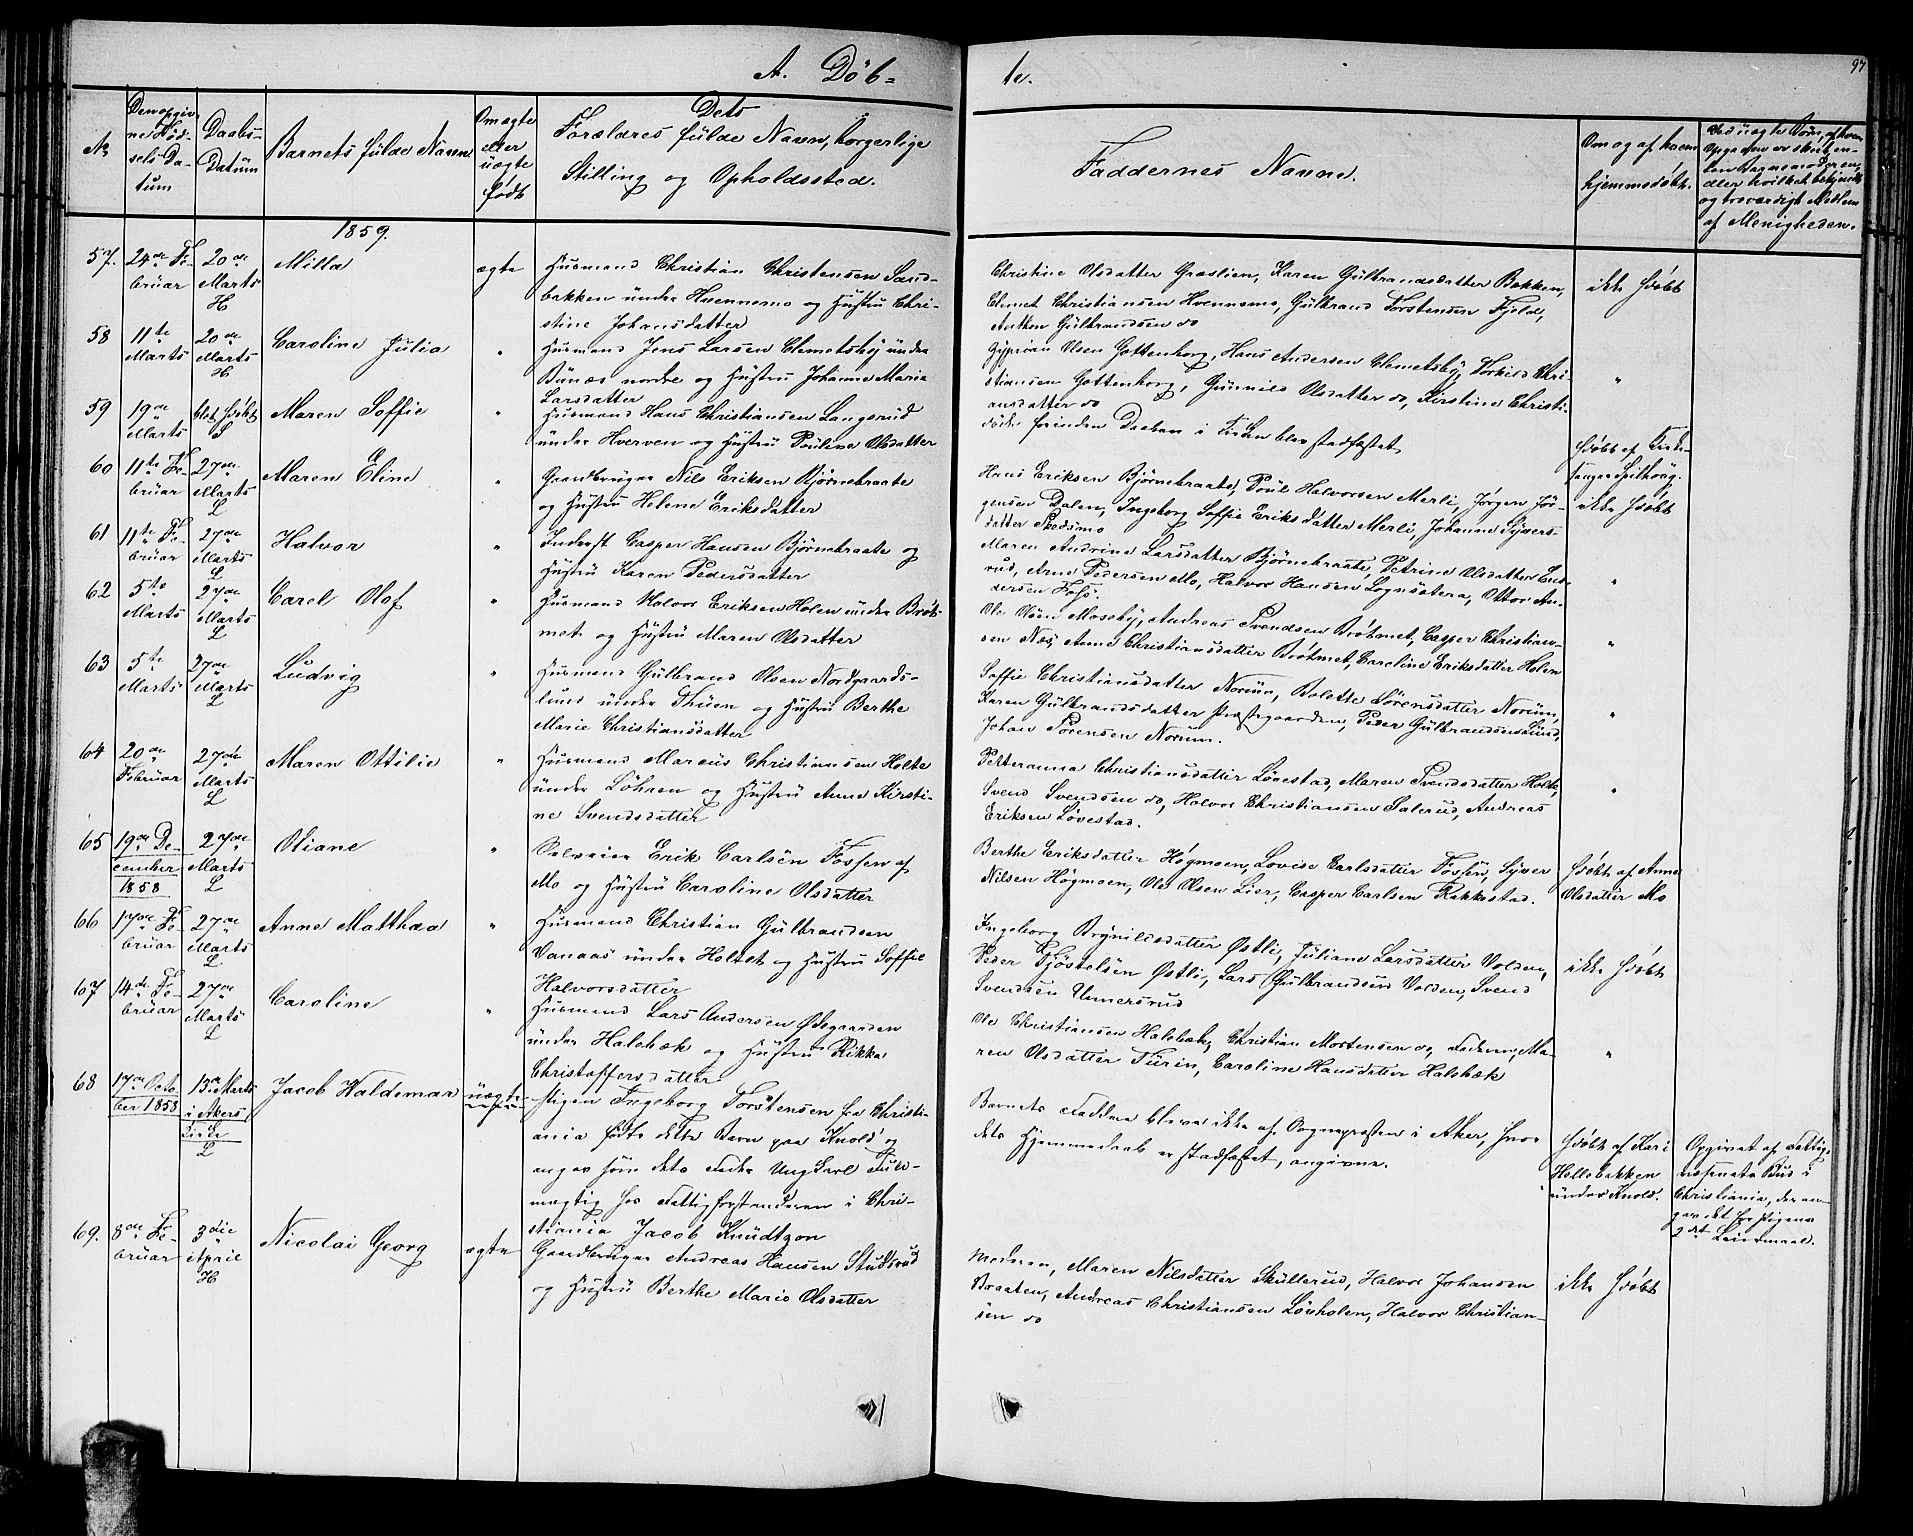 A. Döb=
te.
97
No
Den opgiv-
ne Föd-
sels Da-
tum
Daabs-
Datum
Barnets fulde Navn
Om ægte
eller
uægte
født
Dets
Forældres fulde Navn, borgerlige
Stilling og Opholdssted.
Faddernes Navne.
Om og af hvem
hjemmedöbt.
af Menigheden.
1859.
57. 24de Fe-
bruar
20de
Marts
H
Milla
ægte
Husmand Christian Christensen Sand-
bakken under Huennemo og Hustru Chri-
stine Johansdatter
Christine Olsdatter Græslien, Karen Gulbrandsdatter Bakken,
Clemet Christiansen Hvennemo, Gulbrand Torstensen Fjeld,
Anthon Gulbrandsen do
ikke hjdöbt
58 11te
Marts
20de
Marts
H
Caroline Julia
"
Husmand Jens Larsen Clemetsby under
Bunæs nordre og Hustru Johanne Maria
Larsdatter
Cyprian Olsen Gottenborg, Hans Andersen Clemetsby, Torkild Chri-
stiansen Gottenborg, Gunnild Olsdatter do, Kirstine Christi-
ansdatter do
"
59 19de
Marts
blot hjdöbt
S
Maren Soffie
"
Husmand Hans Christiansen Langsrud
under Hverven og Hustru Pouline Olsdatter
döde forinden Daaben i Kirken blev stadfæstet
hjdöbt af Kirke-
sanger Spilhoug.
60 11te Fe-
bruar
27de
Marts
L
Maren Eline
"
Gaardbruger Nils Eriksen Björnebraate
og Hustru Helene Eriksdatter
Hans Eriksen Björnebraate, Poul Halvorsen Merli, Jörgen Jör-
gensen Dalen, Ingeborg Soffie Eriksdatter Merli, Johanne Syvers-
datter Skedsmo
ikke hjdöbt
61 11te Fe-
bruar
27de
Marts
L
Halvor
"
Inderst Casper Hansen Björnebraate og
Hustru Karen Pedersdatter
Maren Andrine Larsdatter Björnebraate, Petrine Olsdatter
rud, Arne Pedersen Mo, Halvor Hansen Lognsætera, Ottor An-
dersen Foss.
"
62 5te
Marts
27de
Marts
L
Carel Olof
"
Husmand Halvor Eriksen Holen under Bröt-
met og Hustru Maren Olsdatter
Ole Olsen Moseby, Andreas Svendsen Brötmet, Casper Christian-
sen Næs, Anne Christiansdatter Brötmet, Caroline Eriksdatter Holen
"
63 5te
Marts
27de
Marts
L
Ludvig
"
Husmand Gulbrand Olsen Nordgaards-
lund under Thuen og Hustru Berthe
Marie Christiansdatter
Soffie Christiansdatter Norum, Bolette Sörensdatter Norum,
Karen Gulbrandsdatter Præstegaarden, Peder Gulbrandsen Lund,
Johan Sörensen Norum.
"
64 20de
Februar
27de
Marts
L
Maren Ottilie
"
Husmand Marcus Christiansen Holte
under Löhren og Hustru Anne Kirsti-
ne Svendsdatter
Petteranna Christiansdatter Lövestad, Maren Svendsdatter Holte,
Svend Svendsen do, Halvor Christiansen Salerud, Andreas
Eriksen Lövestad.
"
65 19de De-
cember
1858
27de
Marts
L
Oliane
"
Selveier Erik Carlsen Fossen af
Mo og Hustru Caroline Olsdatter
Berthe Eriksdatter Högmoen, Lovise Carlsdatter Fossen, Syver
Nilsen Högmoen, Ole Olsen Lier, Casper Carlsen Rakkestad.
hjdöbt af Anne
Olsdatter Mo
66 17de Fe-
bruar
27de
Marts
L
Anne Matthea
"
Husmand Christian Gulbrandsen
Danaas under Holtet og Hustru Soffie
Halvorsdatter
Ingeborg Brynildsdatter Østli, Juliane Larsdatter Volden,
Peder Tjöstelsen Østli, Lars Gulbrandsen Volden, Svend
Svendsen Unnersrud
ikke hjdöbt
67 14de Fe-
bruar
27de
Marts
L
Caroline
"
Husmand Lars Andersen Ødegaarden
under Halebæk og Hustru Rikka
Christoffersdatter
Ole Christiansen Halebæk, Christian Mortensen do, Faderen, Ma-
ren Olsdatter Turin, Caroline Hansdatter Halebæk
"
68 17de Octo-
ber 1858
13de Marts
i Akers
Kirke
L
Jacob Waldemar
uægte
Pigen Ingeborg Torstensen fra Christi-
ania födte dette Barn paa Knold og
angav som dets Fader Ungkarl Fuld-
mægtig hos Fattigforstanderen i Chri-
stiania Jacob Knudtzon
Barnets Faddere bleve ikke af Sognepræsten i Aker, hvor
dets Hjemmedaab er stadfæstet, angivne.
hjdöbt af Kari
Hellebakken
under Knold.
Opgivet af Fattig-
væsenets Bud i
Christiania, der an-
gav det for Pigens
69. 8de Fe-
bruar
3die
April
H
Nicolai Georg
ægte
Gaardbruger Andreas Hansen Studsrud
og Hustru Berthe Marie Olsdatter
Moderen, Maren Nilsdatter Skullerud, Halvor Johansen
Braaten, Andreas Christiansen Lövholen, Halvor Christian-
sen do
ikke hjdöbt